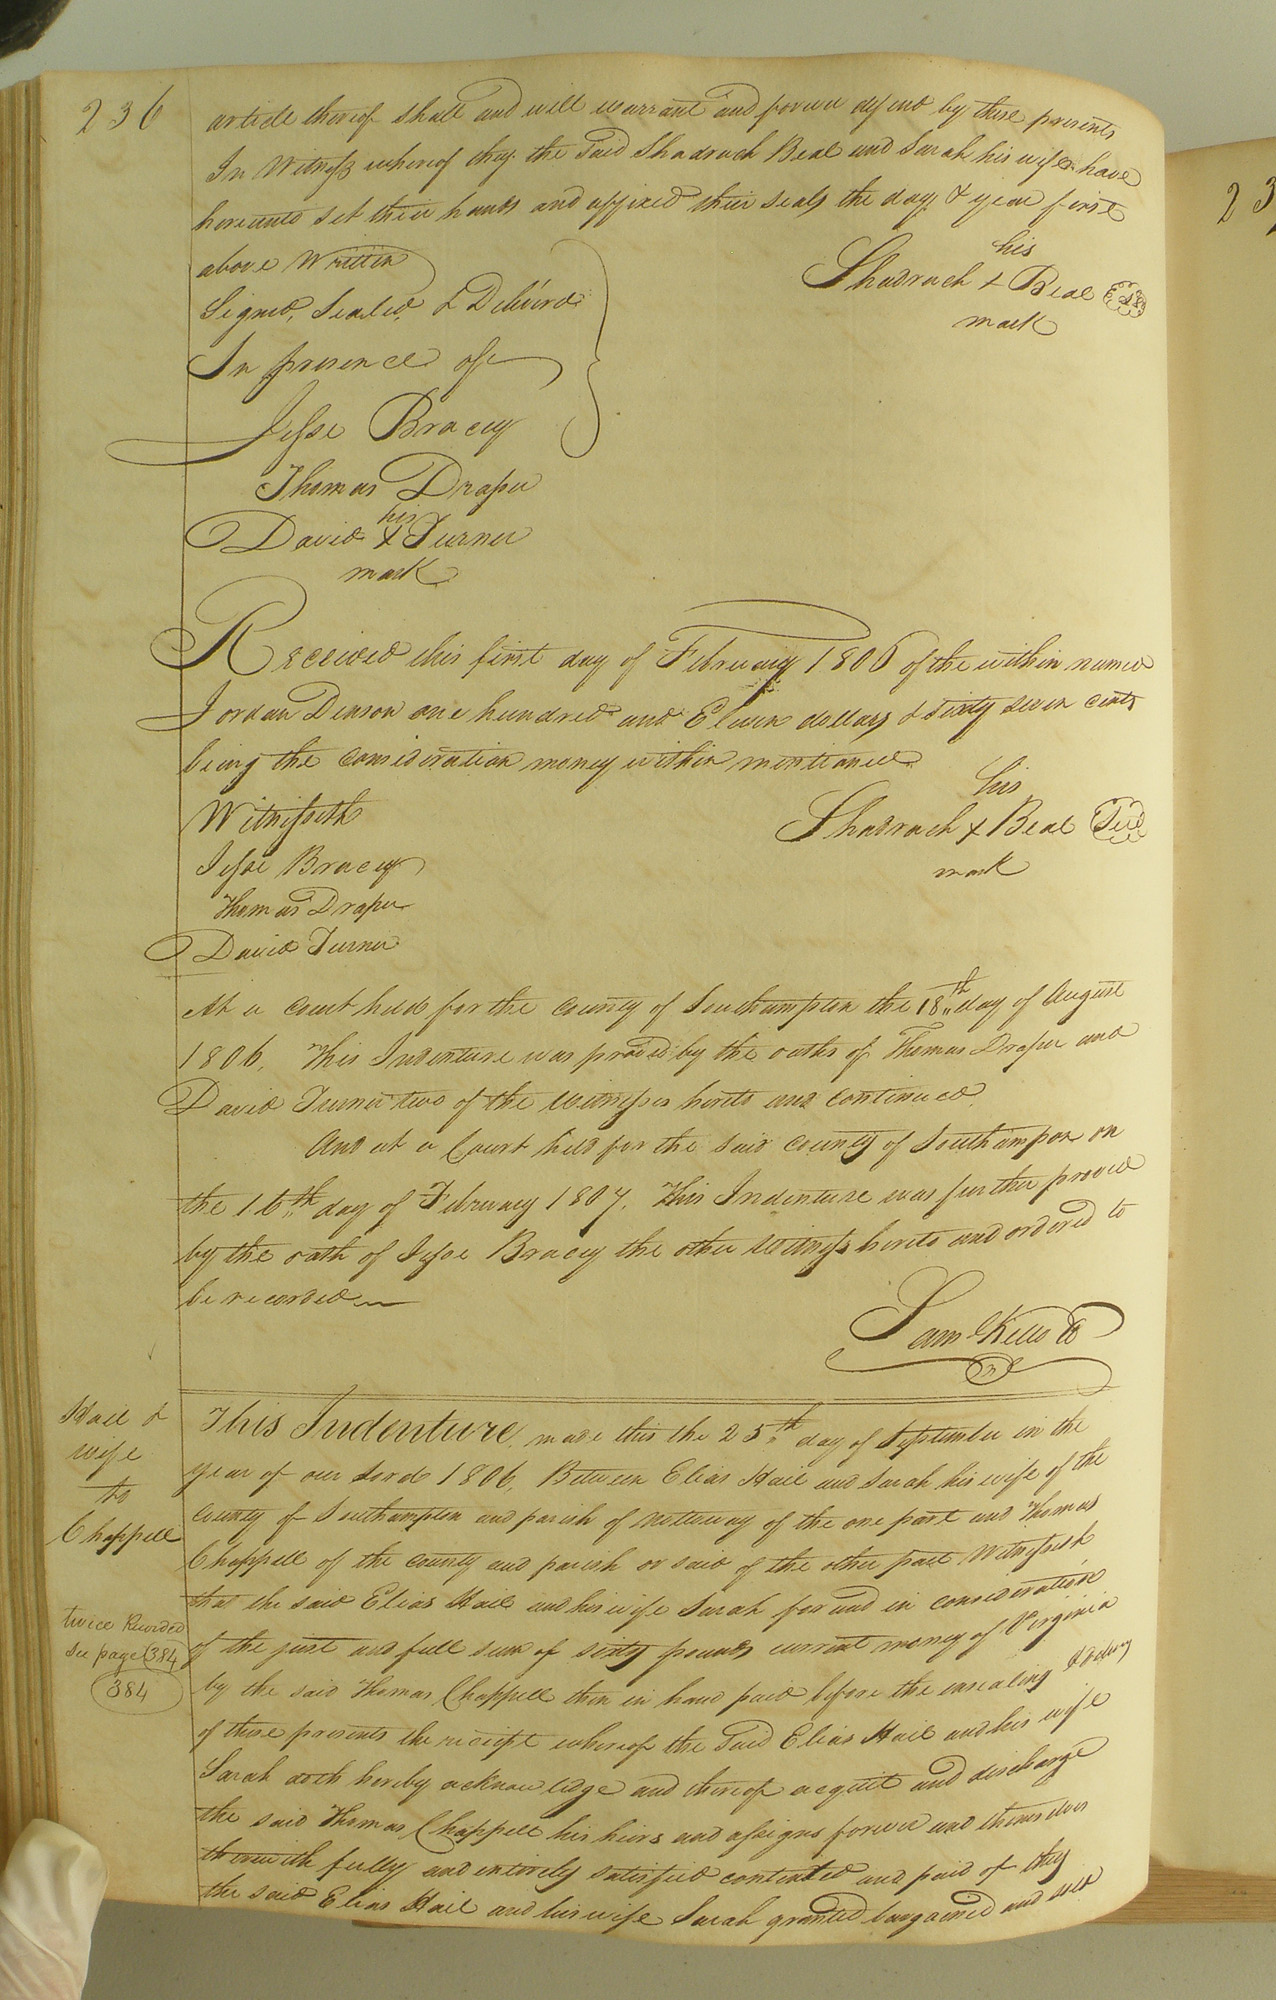 236
article thereof shall and will warrant and forever defend by these presents
In Witness whereof they the said Shadrach Beal and Sarah his wife have
hereunto set their hands and affixed their seals the day & year first
above Written
Signed, Sealed & Deliverd
In presence of
his
Shadrach + Beal
mark
Jesse Bracey
Thomas Draper
his
David + Turner
mark
Received this first day of February 1806 of the within named
Jordan Denson one hundred and Eleven dollars & sixty seven cents
being the consideration money within mentioned
his
Witnesseth
Shadrach + Beal Seal
mark
Jesse Bracey
Thomas Draper
David Turner
At a court held for the county of Southampton the 18th day of August
1806. This Indenture was proved by the oaths of Thomas Draper and
David Turner two of the Witnesses hereto and continued.
And at a Court held for the said county of Southampon on
the 16th day of February 1807. This Indenture was further proved
by the oath of Jesse Bracey the other Witness hereto and ordered to
be recorded
Sam Kello
Hail &
wife
to
Chappell
twice Recorded
see page 384
384
This Indenture, made this the 25th day of September in the
year of our Lord 1806, Between Elias Hail and Sarah his wife of the
county of Southampton and parish of Nottoway of the one part and Thomas
Chappell of the county and parish or said of the other part Witnesseth
that the said Elias Hail and his wife Sarah for and in consideration
of the just and full sum of sixty pounds current money of Virginia
by the said Thomas Chappell then in hand paid before the ensealing & delivy
of these presents the receipt whereof the said Elias Hail and his wife
Sarah doth hereby acknowledge and thereof acquit and discharge
the said Thomas Chappell his heirs and assigns forever and themselves
therewith fully and entirely satisfied contented and paid of they
the said Elias Hail and his wife Sarah granted bargained and sold
23